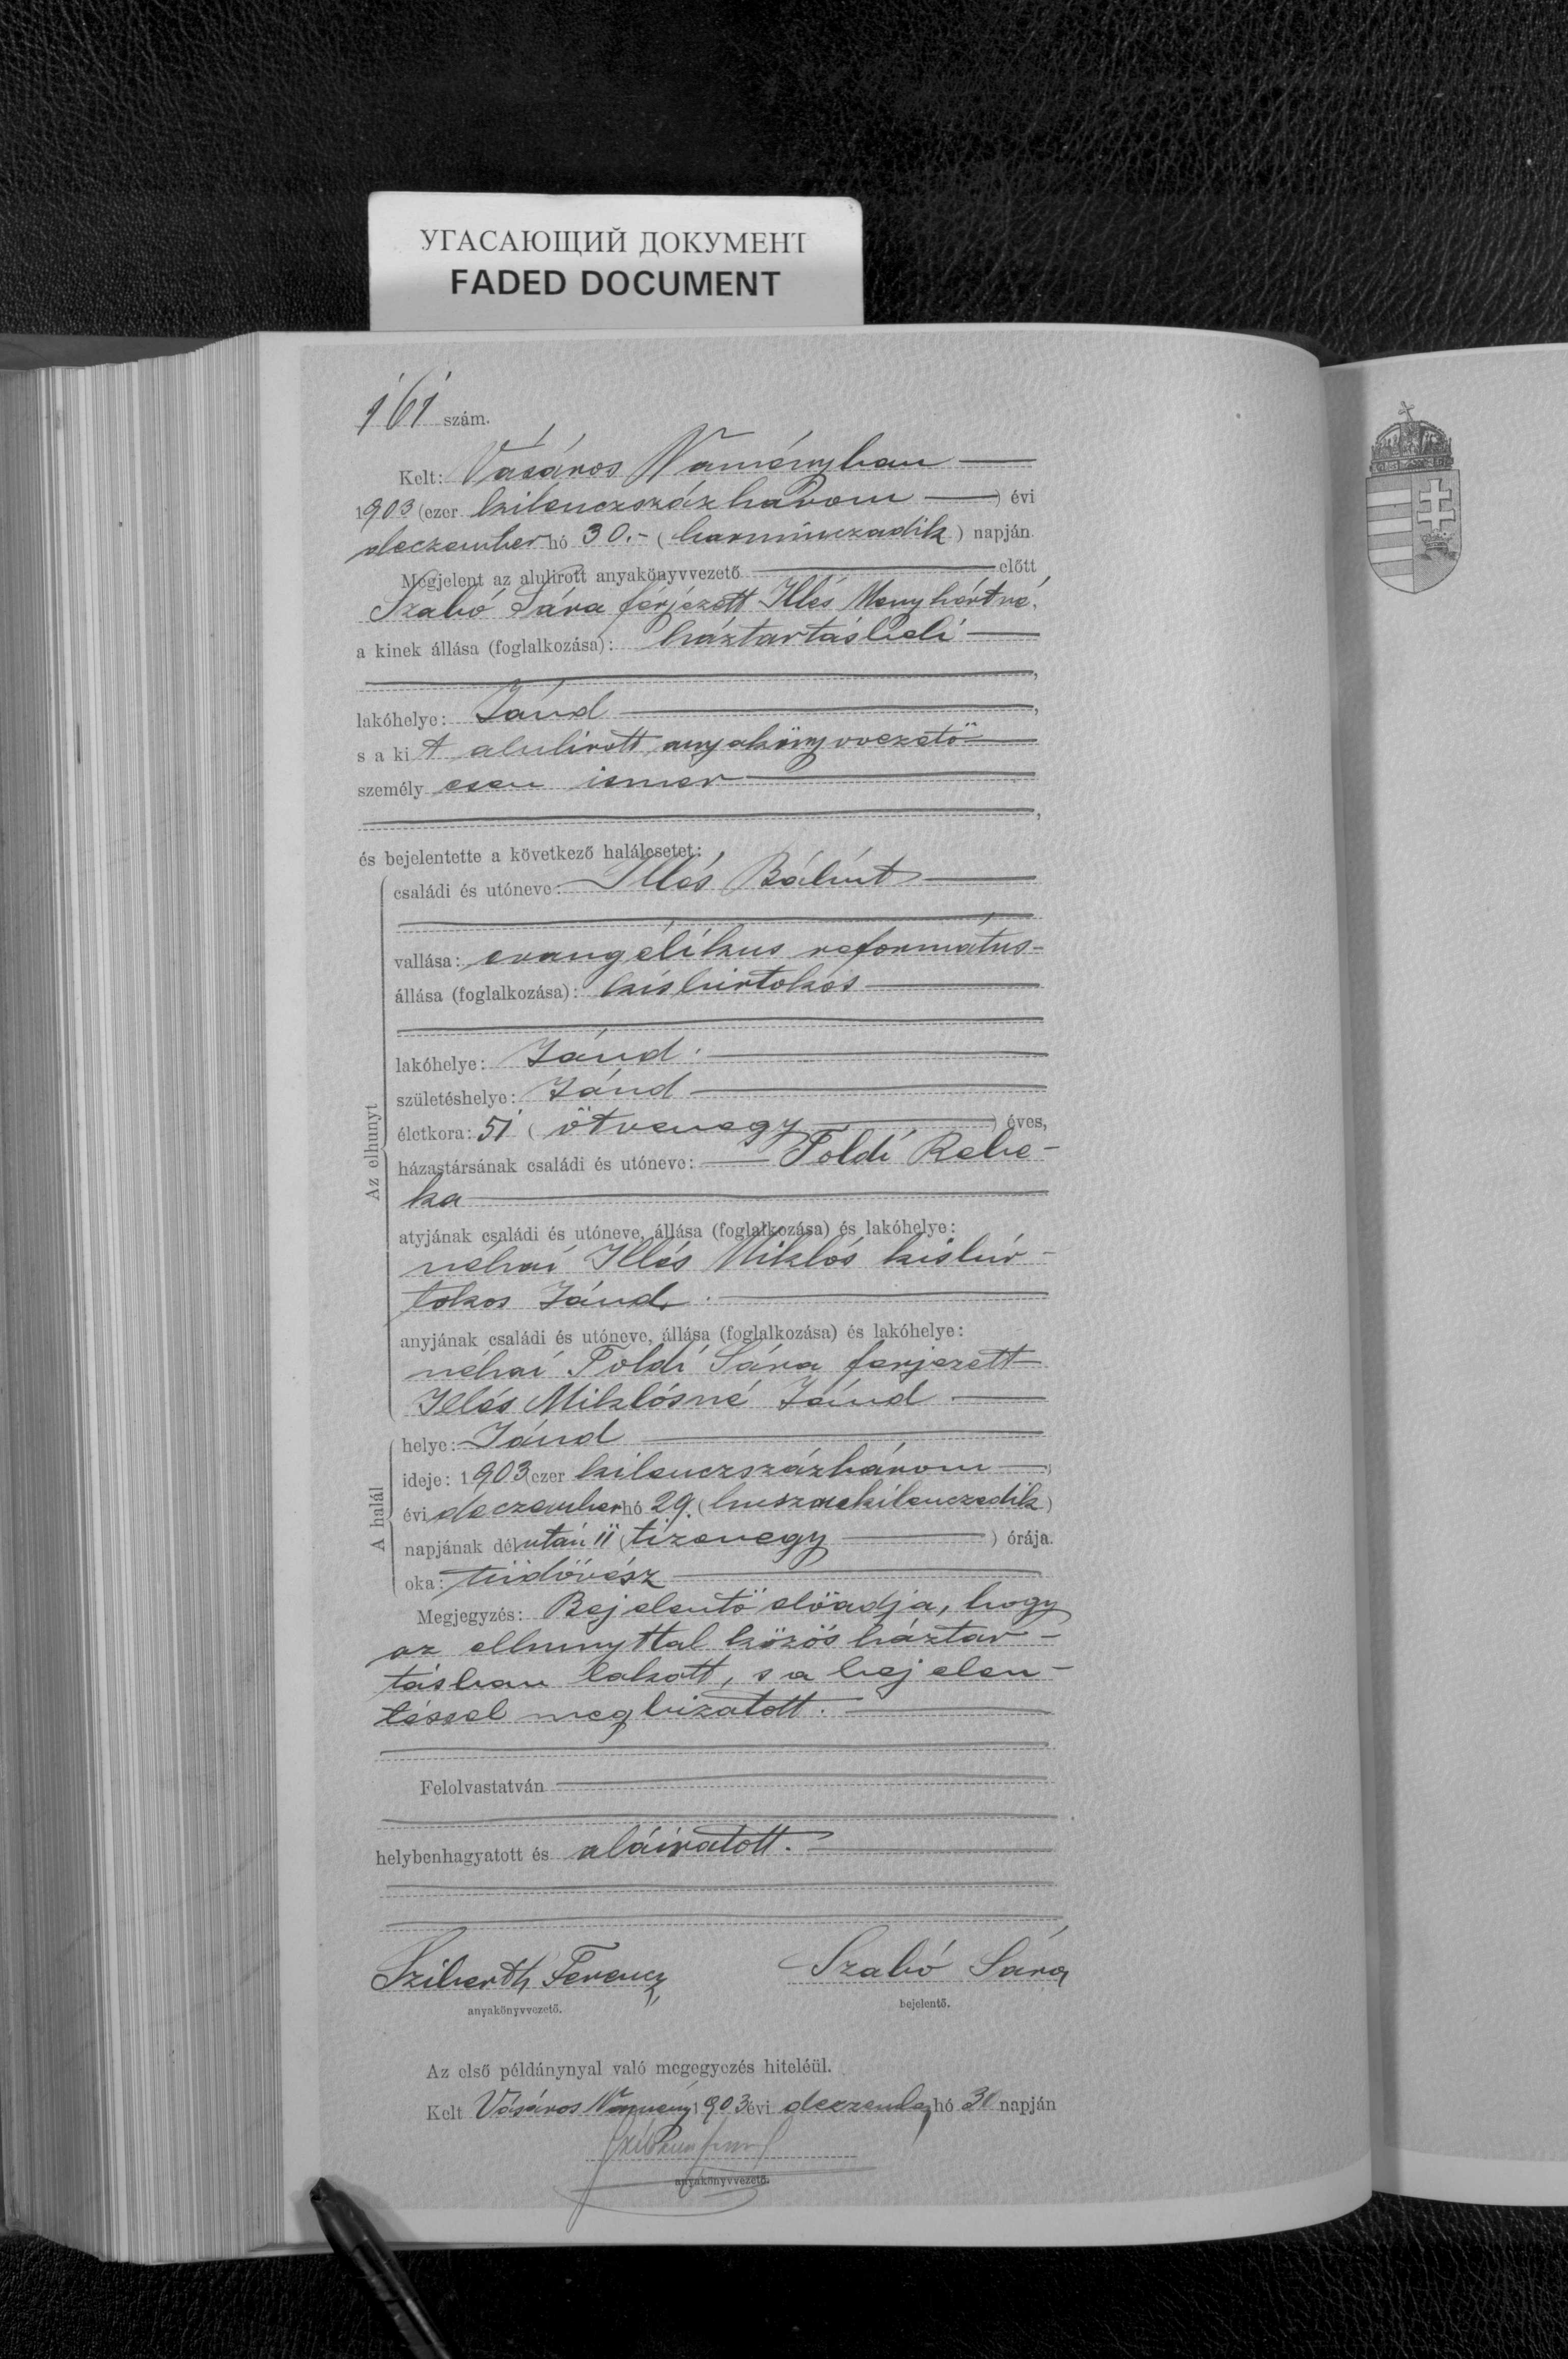 УГАСАЮЩИЙ ДОКУМЕНТ
FADED DOCUMENT
161 szám.
Kelt: Vásáros Naményban
1903 (ezer kilenczszázhárom) évi
deczember hó 30.- (harminczadik) napján
Megjelent az alulirott anyakönyvvezető előtt
Szabó Sára férjezett Illés Menyhértné,
a kinek állása (foglalkozása): háztartásbeli
lakóhelye: Jánd
s a kit alulirott anyakönyvvezető
személyesen ismer
és bejelentette a következő halálesetet:
Az elhunyt
családi és utóneve: Illés Bálint
vallása: evangélikus református-
állása (foglalkozása): kisbirtokos
lakóhelye: Jánd.
születéshelye: Jánd
életkora: 51 (ötvenegy) éves,
házastársának családi és utóneve: Földi Rebe-
ka
atyjának családi és utóneve, állása (foglalkozása) és lakóhelye:
néhai Illés Miklós kisbir-
tokos Jánd.
anyjának családi és utóneve, állása (foglalkozása) és lakóhelye:
néhai Földi Sára ferjezett
Illés Miklósné Jánd
A halál
helye: Jánd
ideje: 1903 (ezer kilenczszázhárom)
évi deczember hó 29. (huszonkilenczedik)
napjának délután 11 (tizenegy) órája.
oka: tüdővész
Megjegyzés: Bejelentő előadja, hogy
az elhunyttal közös háztar-
tásban lakott, s a bejelen-
téssel megbizatott.
Felolvastatván
helybenhagyatott és aláiratott.
Sziberth Ferencz
Szabó Sára
anyakönyvvezető.
bejelentő.
Az első példánynyal való megegyezés hiteléül.
Kelt Vásáros Namény 1903 évi deczember hó 30 napján
anyakönyvvezető.